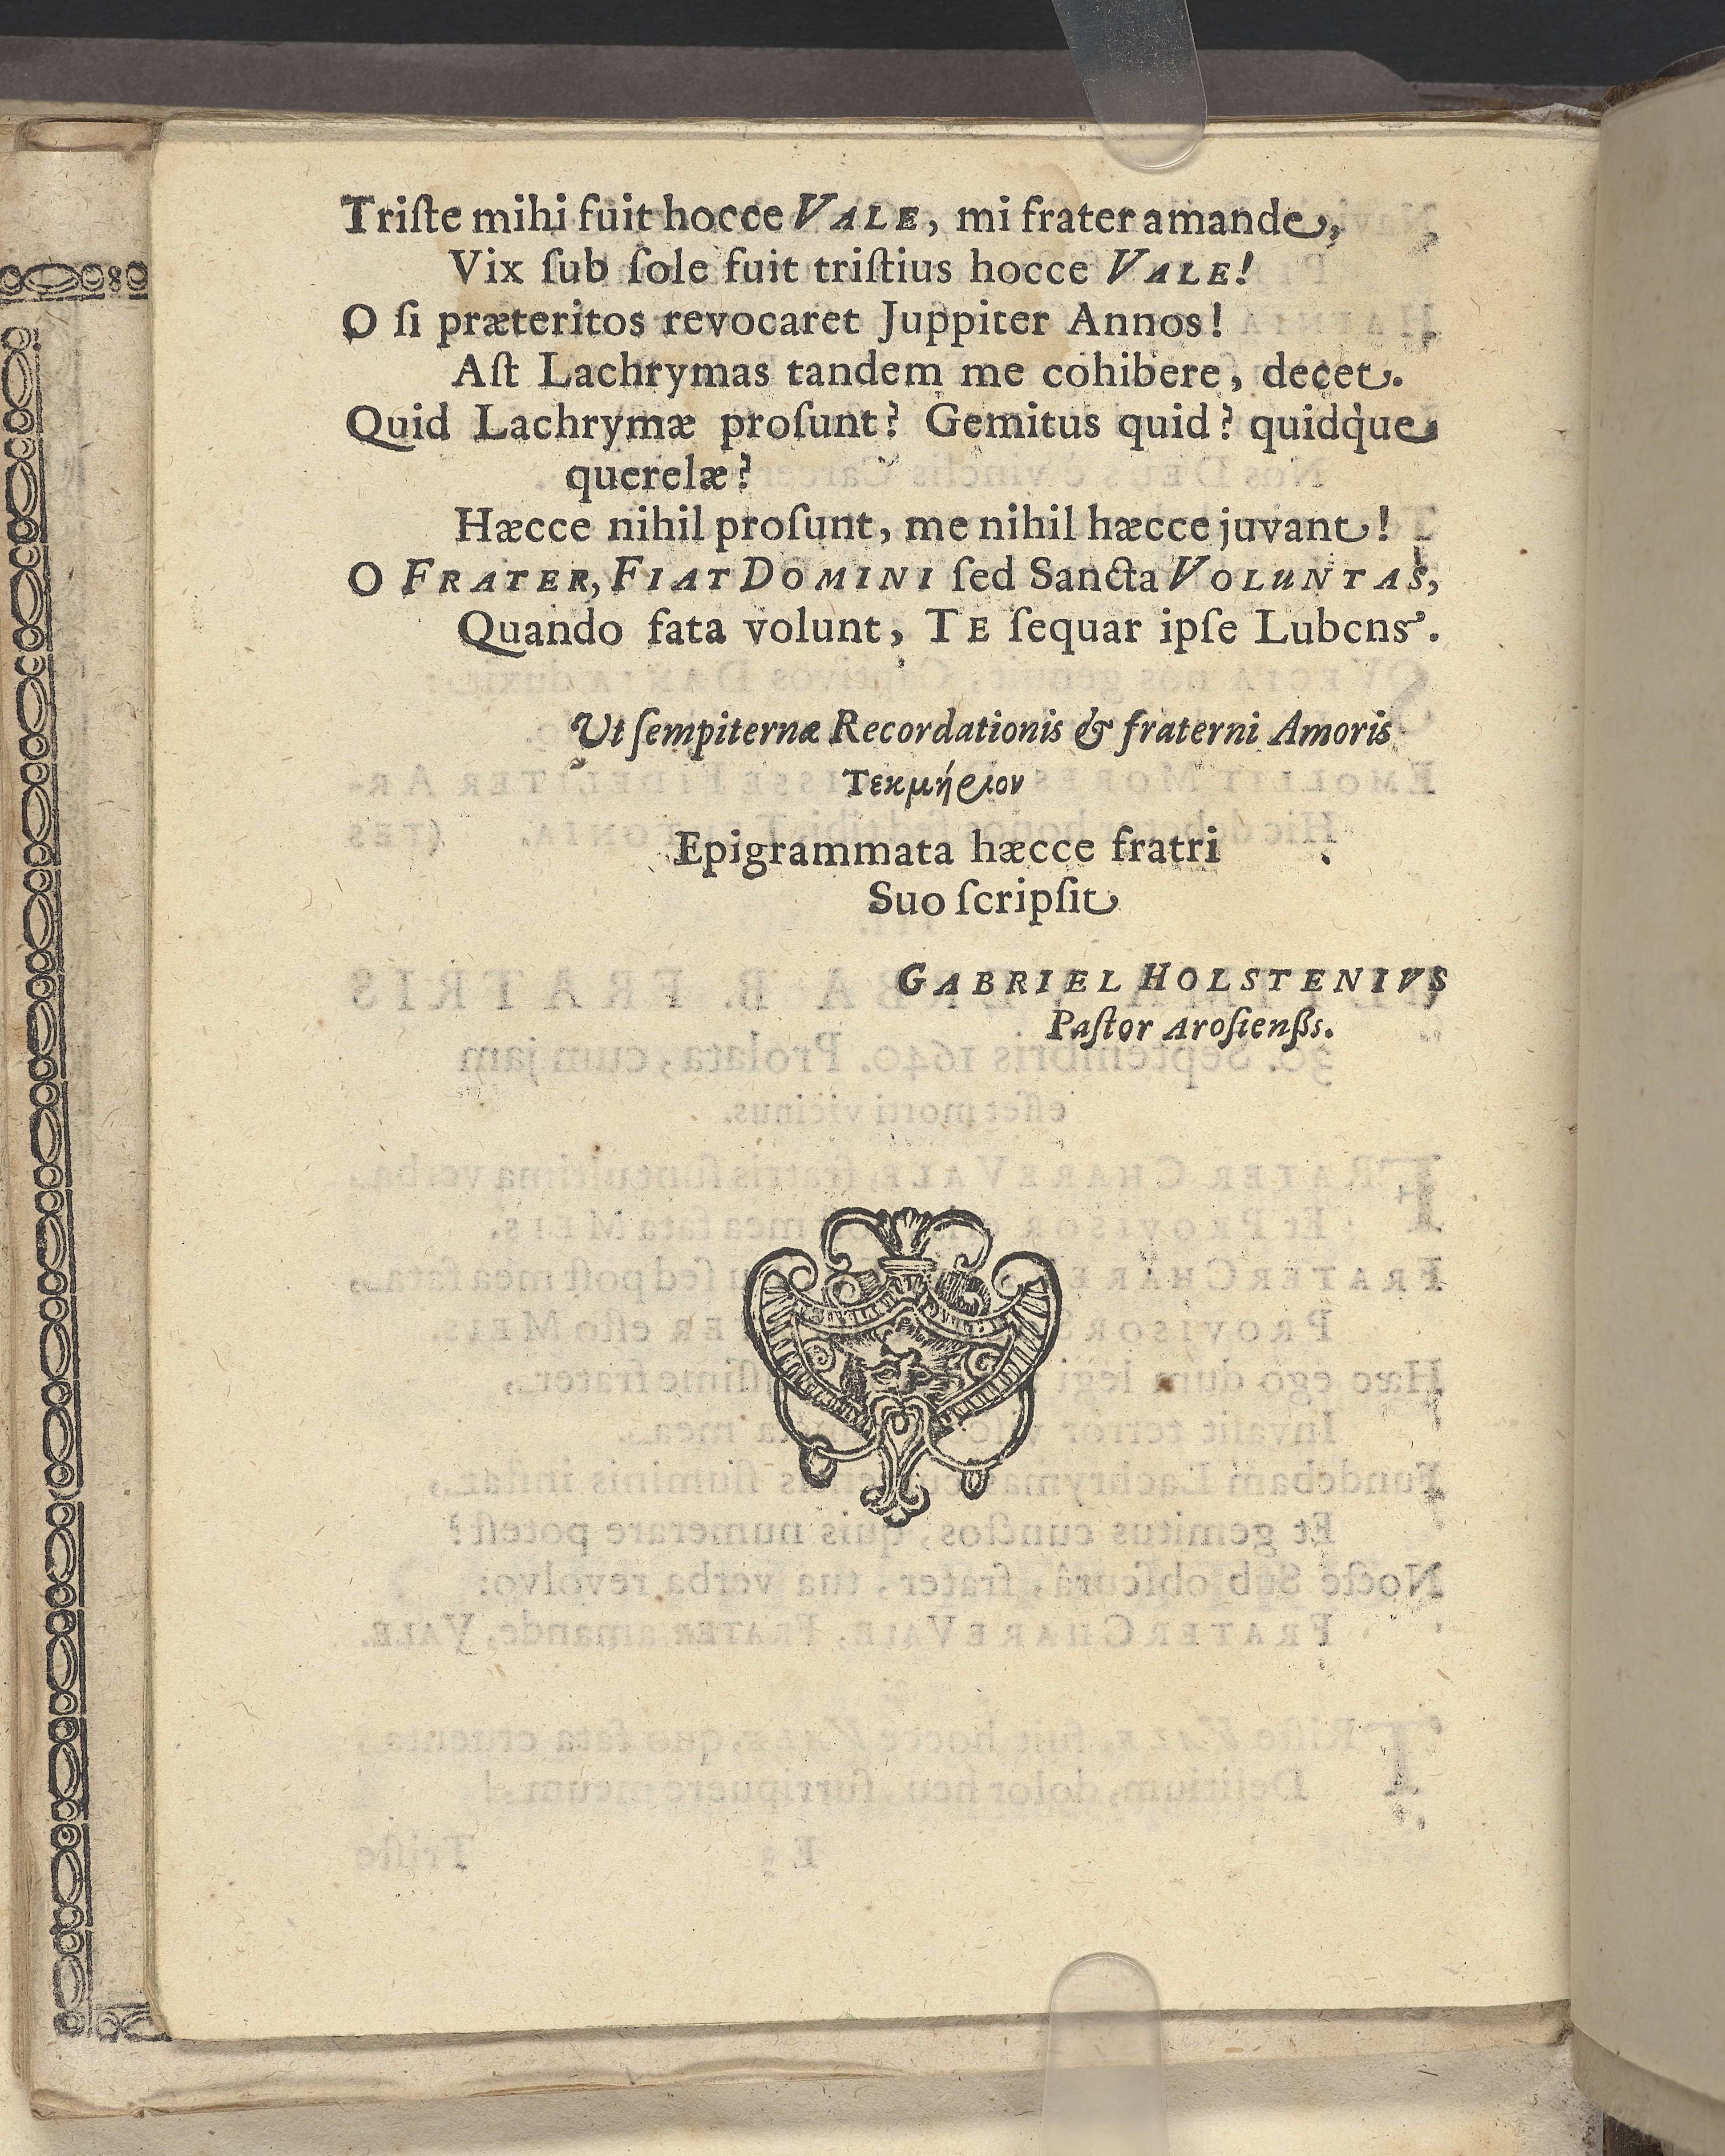 Triſte mihi fuit hocce VALE, mi frater amande,
Vix ſub ſole fuit triſtius hocce VALE!
O ſi præteritos revocaret Juppiter Annos!
Aſt Lachrymas tandem me cohibere, decet.
Quid Lachrymæ proſunt? Gemitus quid? quidq̀ue
querelæ?
Hæcce nihil proſunt, me nihil hæcce juvant!
O FRATER, FIAT DOMINI ſed Sancta VOLUNTAS,
Quando fata volunt, TE ſequar ipſe Lubens.
Ut ſempiternæ Recordationis & fraterni Amoris
Τεκμήριον
Epigrammata hæcce fratri
Suo ſcripſit
GABRIEL HOLSTENIVS
Paſtor Aroſienſis.